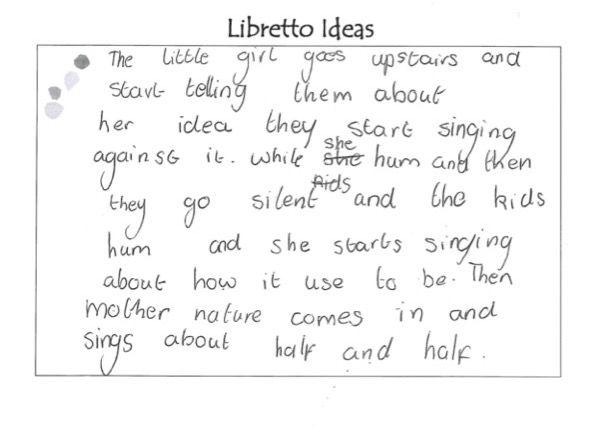 Libretto Ideas
The little girl goes upstairs and
start telling them about
her idea they start singing
against it. while she she hum and then
they go silent kids and the kids
hum and she starts singing
about how it use to be. Then
mother nature comes in and
sings about half and half.